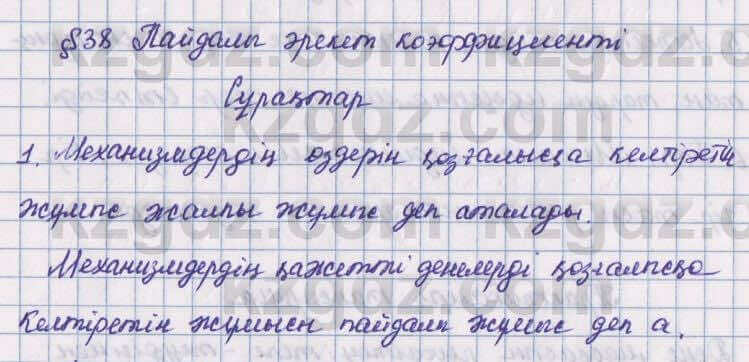 §38 Пайдалы әрекет коэффициенті
Сұрақтар
1. Механизмдердің өздерін қозғалысқа келтіретін
жұмыс жалпы жұмыс деп аталады.
Механизмдердің қажетті денелерді қозғалысқа
келтіретін жұмысын пайдалы жұмыс деп а.